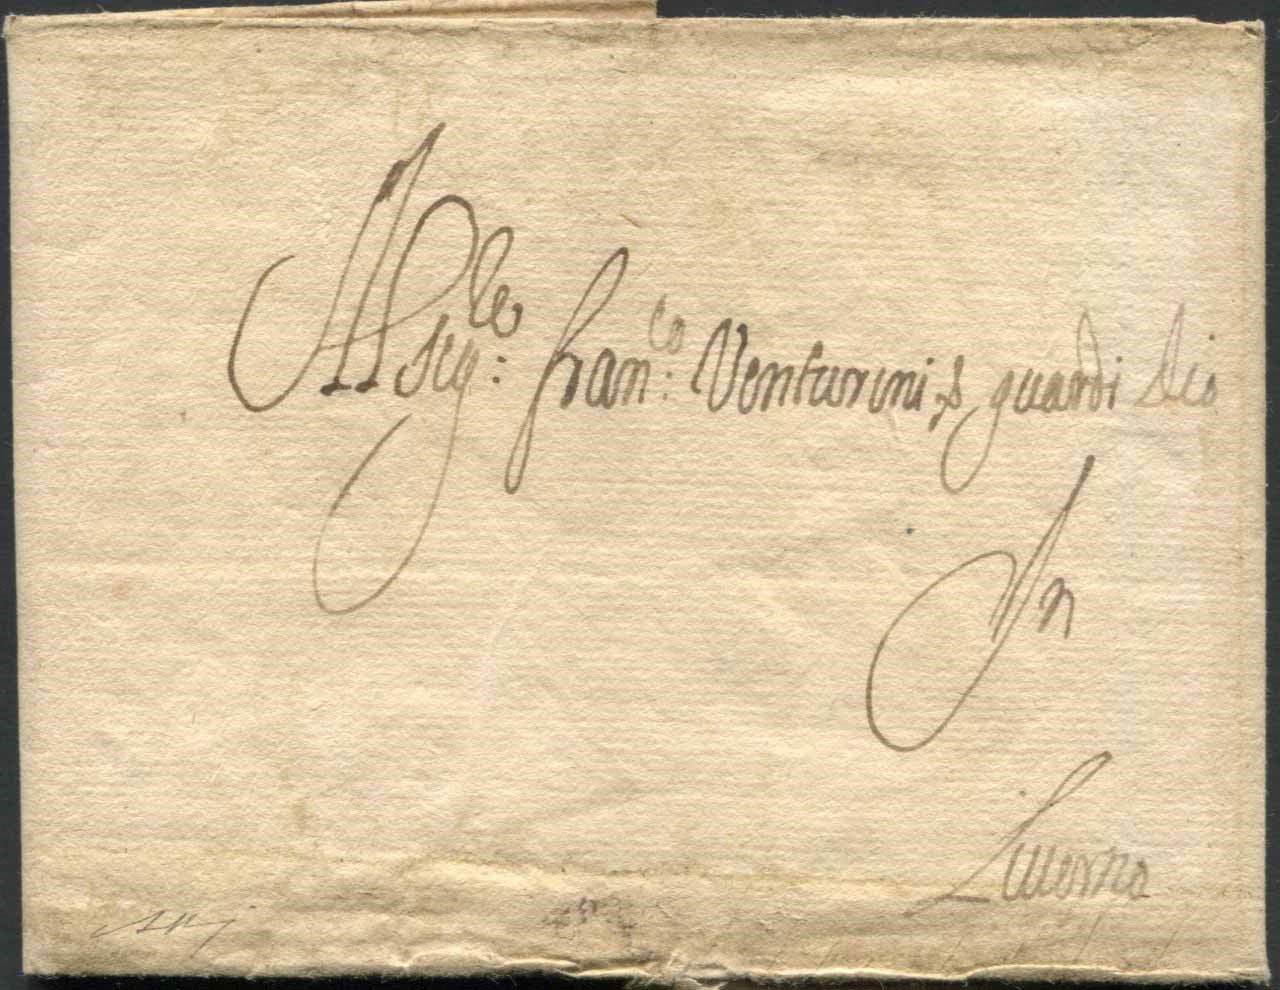 Al Sig:le Fran:co Venturini g guardi Dio
In
Liuorno